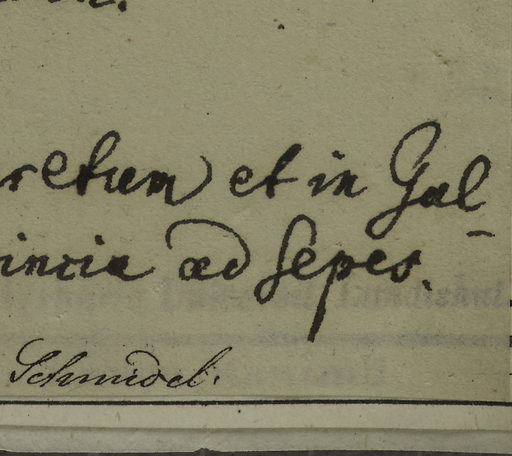 retum et in Gal-
incia ad sepes.
Schmidel.